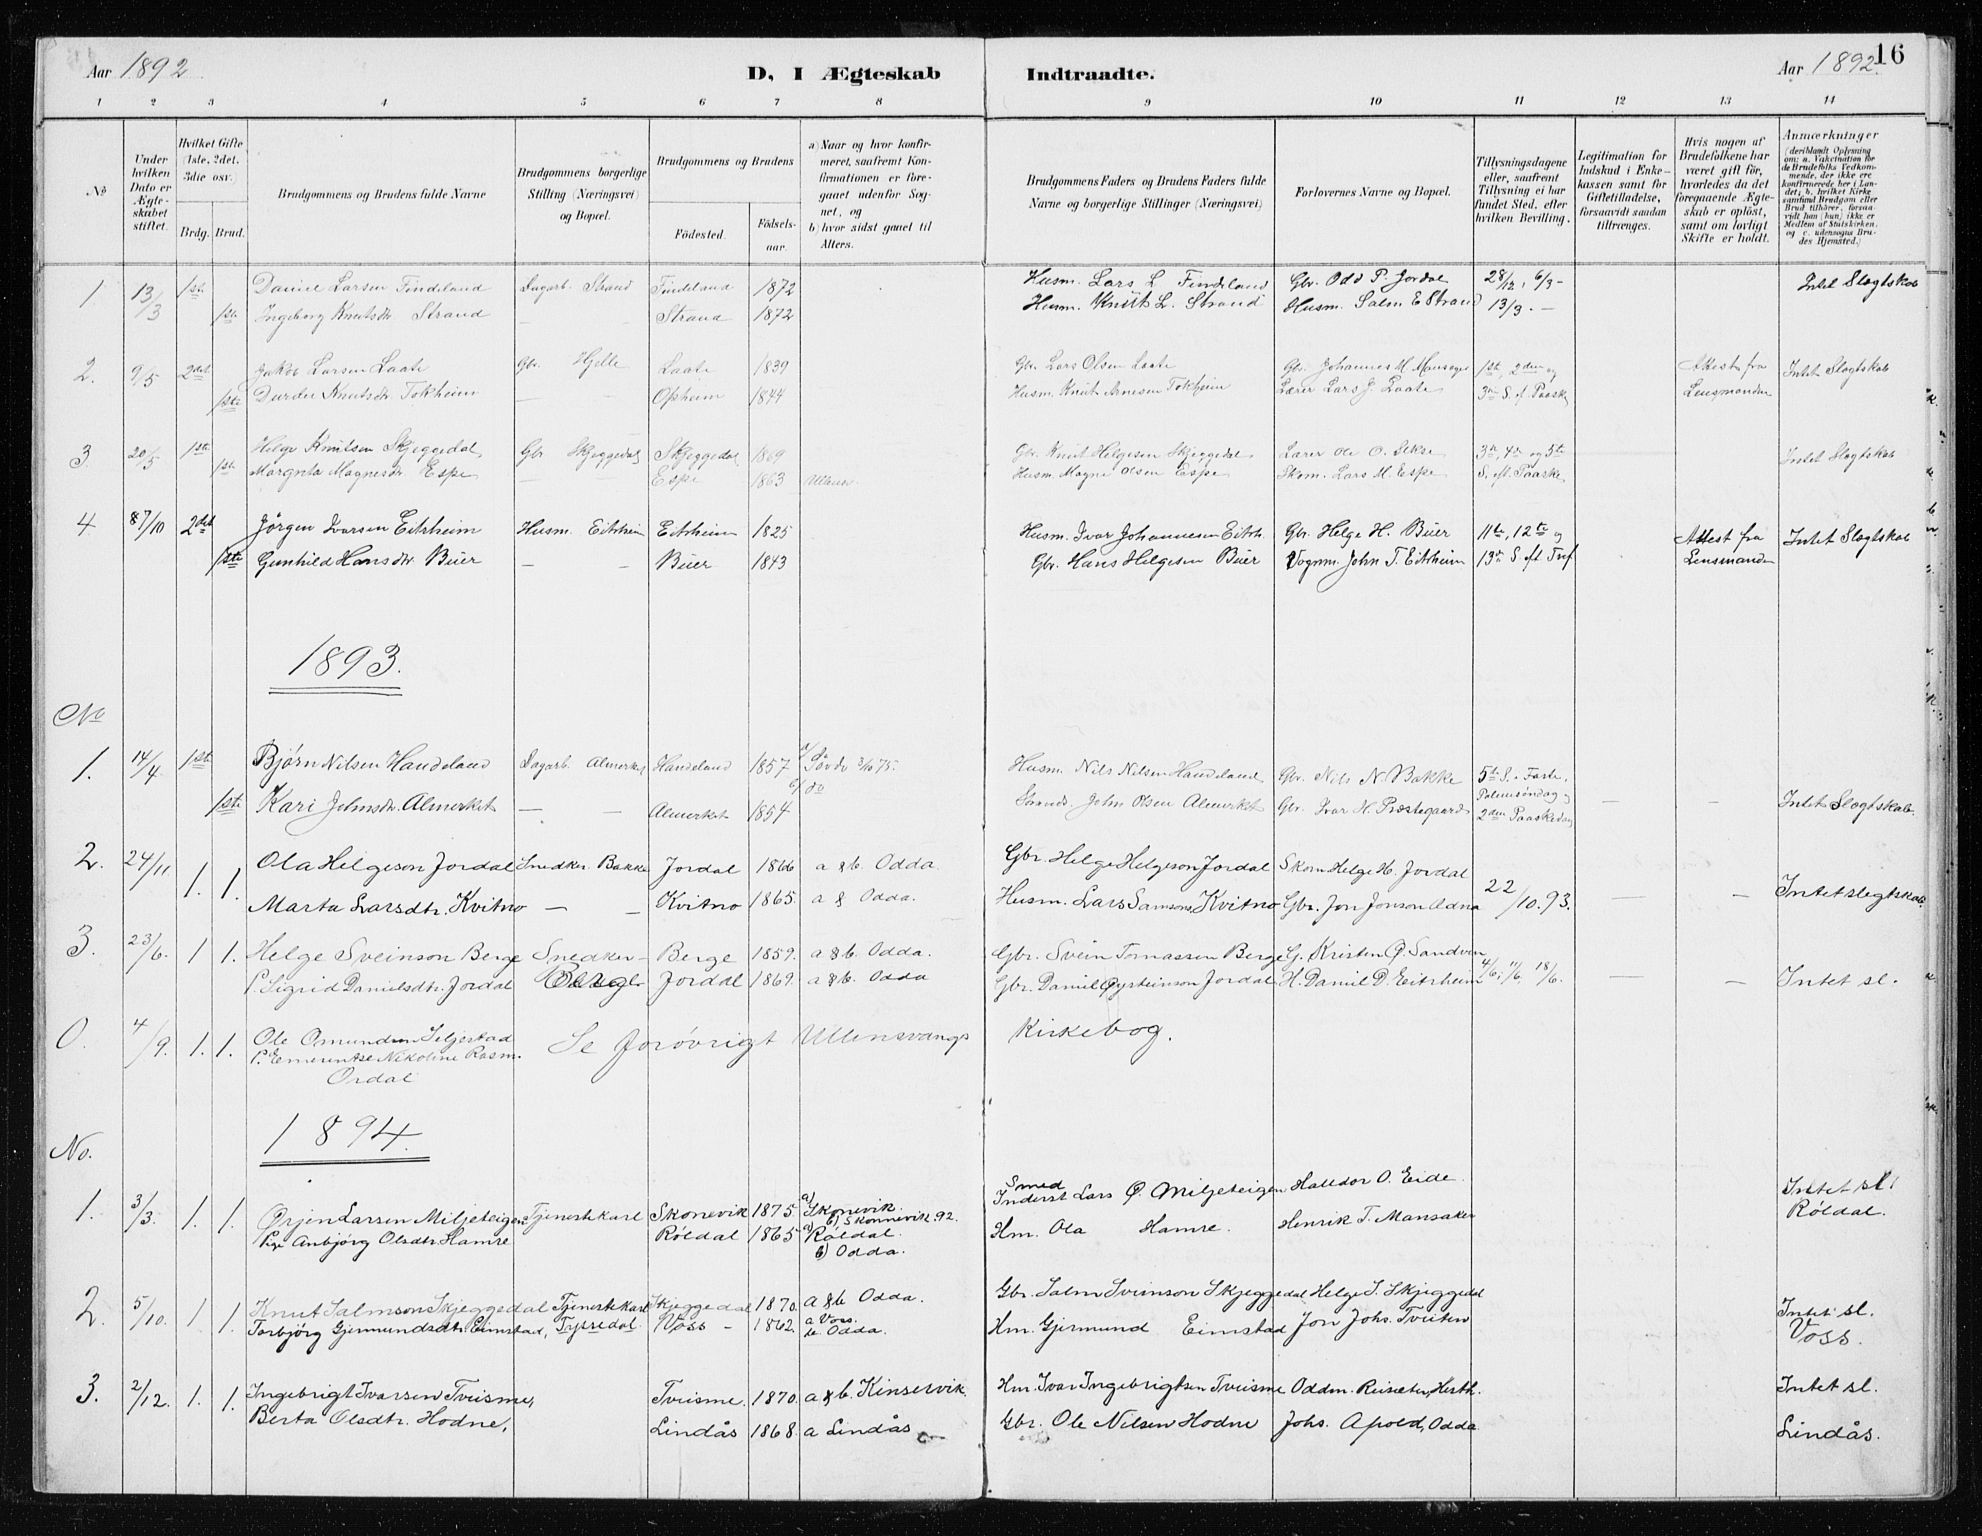 Aar 1892
D, I Ægteskab Indtraadte.
Aar 1892. 16
1 2 3 4 5 6 7 8 9 10 11 12 13 14
No
Under hvilken Dato er Ægteskabet stiftet.
Hvilket Gifte (1ste, 2det, 3die osv.)
Brdg. Brud.
Brudgommens og Brudens fulde Navne
Brudgommens borgerlige Stilling (Næringsvei) og Bopæl.
Brudgommens og Brudens
Fødested. Fødselsaar.
a) Naar og hvor konfirmeret, saafremt Konfirmationen er foregaaet udenfor Sognet, og
b) hvor sidst gaaet til Alters.
Brudgommens Faders og Brudens Faders fulde Navne og borgerlige Stillinger (Næringsvei)
Forlovernes Navne og Bopæl.
Tillysningsdagene eller, saafremt Tillysning ei har fundet Sted, efter hvilken Bevilling.
Legitimation for Indskud i Enkekassen samt for Giftetilladelse, forsaavidt saadan tiltrænges.
Hvis nogen af Brudefolkene har været gift før, hvorledes da det foregaaende Ægteskab er opløst, samt om lovligt Skifte er holdt.
Anmærkninger (deriblandt Oplysning om: a. Vakcination for de Brudefolks Vedkommende, der ikke ere konfirmerede her i Landet; b. hvilket Kirkesamfund Brudgom eller Brud tilhører, forsaavidt han (hun) ikke er Medlem af Statskirken, og c. udensogns Brudes Hjemsted.)
1 13/3 1ste Daniel Larsen Findeland Dagarb. Strand Findeland 1872 Husm. Lars L. Findeland Gbr. Odd P. Jordal 28/12, 6/3- Intet Slægtskab
1ste Ingeborg Knutsdr. Strand — — Strand 1872 Husm. Knut L. Strand Husm. Salm E Strand 13/3. —
2. 9/5 2det Jakob Larsen Laate Gbr. Hjelle Laate 1839 Gbr. Lars Olsen Laate Gbr. Johannes M. 1ste, 2den og Attest fra Intet Slægtskab
1ste Durdei Knutsdr. Tokheim — — Opheim 1844 Husm. Knut Arnesen Tokheim Lærer Lars J. Laate 3die S. ef. Paaske Lensmanden
3 20/5 1ste Helge Knutsen Skjeggedal Gbr Skjeggedal Skjeggedal 1869 Gbr. Knut Helgesen Skjeggedal Lærer Ole O. Sekse 3die, 4de og 5te Intet Slægtskab
1ste Margrita Magnesdr. Espe — — Espe 1863 Ullensv. Husm. Magne Olsen Espe Skom. Lars M. Espe S. eft. Paaske
4 7/10 2det Jørgen Ivarsen Eitrheim Husm. Eitrheim Eitrheim 1825 Husm. Ivar Johannesen Eitrh. Gbr. Helge H. Buer 11te, 12te og Attest fra Intet Slægtskab
1ste Gunhild Hansdr. Buer — — Buer 1843 Gbr. Hans Helgesen Buer Vognm. John T. Eitrheim 13de S. eft Tref Lensmanden
1893.
No
1. 14/4 1ste Bjørn Nilsen Handeland Dagarb. Almerket Handeland 1857 a) Søvde 3/10 75. Husm. Nils Nilsen Handeland Gbr. Nils N. Bakke 5te S. i Faste,
1ste Kari Johnsdr. Almerket — — Almerket 1854 b) do Strands. John Olsen Almerket Gbr. Ivar H. Præstegaard Palmesøndag og 2den Paaskedag — — Intet Slægtskab.
2. 24/11 1. 1. Ola Helgeson Jordal Snedker. Bakke Jordal 1866 a & b. Odda. Gbr. Helge Helgeson Jordal Skom Helge H. Jordal
Marta Larsdtr. Kvitno — — Kvitno 1865. a & Odda. Husm. Lars Samsons. Kvitno Gbr. Jon Jonson Adna 22/10. 93. — — Intet slegtskab.
3. 23/6. 1 1. Helge Sveinson Berge Snedker — Berge 1859. a & b. Odda. Gbr. Svein Tomassen Berge G. Kristen Ø. Sandven
P. Sigrid Danielsdtr. Jordal Berge Jordal 1869. a & b. Odda Gbr. Daniel Øysteinson Jordal H. Daniel D. Eitrheim 4/6, 11/6, 18/6. — — Intet sl.
O. 4/9. 1. 1. Ole Omundsen Seljestad Se forøvrigt Ullensvangs Kirkebog.
P. Emerentse Nikoline Rasm. Ordal
1894.
No.
1. 3/3. 1. 1. Ørjen Larsen Miljeteigen Tjenestekarl Skonevik 1875. a) Skonevik. b) Skonnevik 92. Smed Inderst Lars Ø. Miljeteigen Halldor O. Eide. Intet sl.
Pige Anbjørg Olsdtr. Hamre Røldal 1865 a) Røldal. b) Odda. Hm. Ola Hamre. Henrik T. Mansaker Røldal.
2. 5/10. 1. 1. Knut Salmson Skjeggedal Tjenestekarl Skjeggedal 1870. a & b Odda. Gbr. Salm Sveinson Skjeggedal Helge S. Skjeggedal Intet sl.
Torbjørg Gjermundsdtr. Eimstad, Tyssedal. Voss — 1862. a Voss. b. Odda. Hm. Gjermund Eimstad Jon Johs. Tveiten Voss.
3. 2/12. 1. 1. Ingebrigt Ivarsen Tveisme, Tveisme. 1870. a & b. Kinservik. Hm. Ivar Ingebrigtsen Tveisme Oddm. Reisæter, Herth. Intet sl.
Berta Olsdtr. Hodne, Lindås 1868. a Lindås Gbr. Ole Nilsen Hodne Johs. Apold, Odda Lindås.